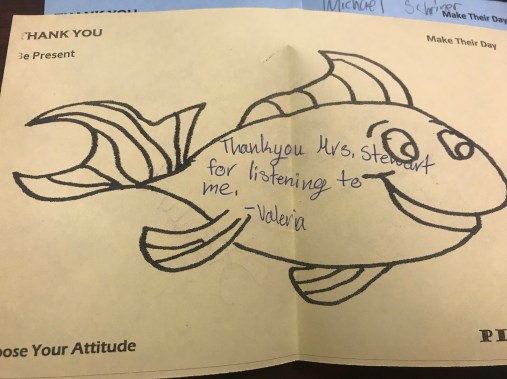 THANK YOU
Michael Schriner
Make Their Day
THANK YOU
Make Their Day
Be Present
Thankyou Mrs. Stewart
for listening to
me.
-Valeria
ose Your Attitude